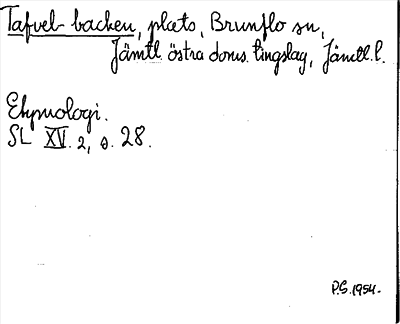 Tafvel-backen, plats, Brunflo sn,
Jämtl. östra doms. tingslag, Jämtl. l.
Etymologi.
SL XV. 2, s. 28.
P.S. 1954.